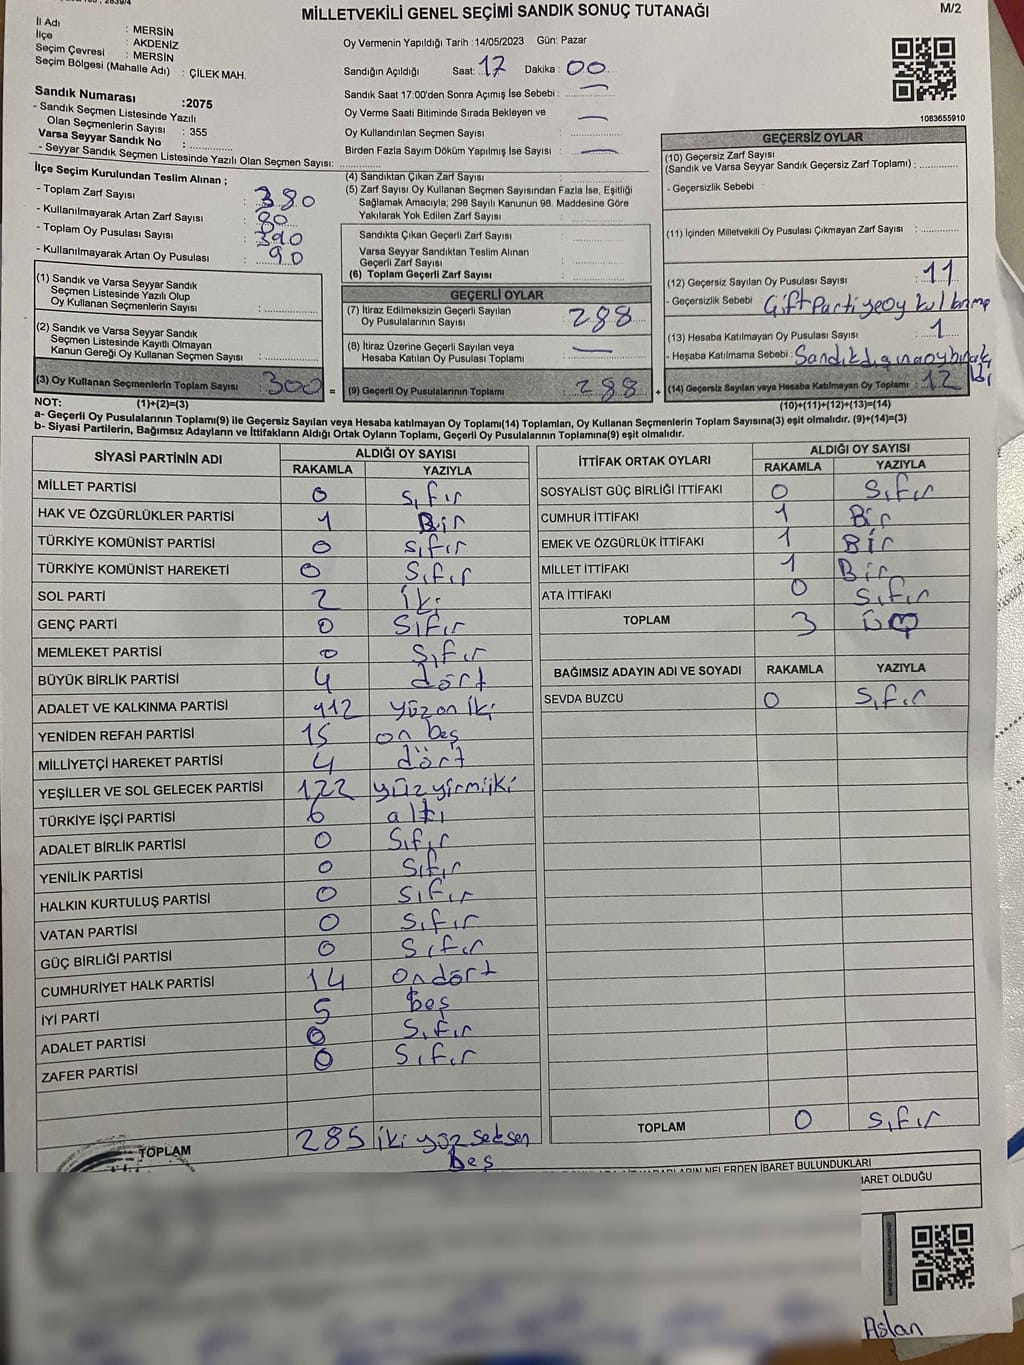 MİLLETVEKİLİ GENEL SEÇİMİ SANDIK SONUÇ TUTANAĞI
M/2
İl Adı : MERSİN
İlçe : AKDENİZ
Seçim Çevresi : MERSİN
Seçim Bölgesi (Mahalle Adı) : ÇİLEK MAH.
Oy Vermenin Yapıldığı Tarih : 14/05/2023 Gün: Pazar
Sandığın Açıldığı Saat: 17 Dakika : 00
Sandık Saat 17:00'den Sonra Açımış İse Sebebi : —
Oy Verme Saati Bitiminde Sırada Bekleyen ve
Oy Kullandırılan Seçmen Sayısı : —
Birden Fazla Sayım Döküm Yapılmış İse Sayısı : —
1083655910
Sandık Numarası :2075
- Sandık Seçmen Listesinde Yazılı
Olan Seçmenlerin Sayısı : 355
Varsa Seyyar Sandık No :
- Seyyar Sandık Seçmen Listesinde Yazılı Olan Seçmen Sayısı:
İlçe Seçim Kurulundan Teslim Alınan ;
- Toplam Zarf Sayısı : 380
- Kullanılmayarak Artan Zarf Sayısı : 80
- Toplam Oy Pusulası Sayısı : 390
- Kullanılmayarak Artan Oy Pusulası : 90
(1) Sandık ve Varsa Seyyar Sandık
Seçmen Listesinde Yazılı Olup
Oy Kullanan Seçmenlerin Sayısı :
(2) Sandık ve Varsa Seyyar Sandık
Seçmen Listesinde Kayıtlı Olmayan
Kanun Gereği Oy Kullanan Seçmen Sayısı :
(3) Oy Kullanan Seçmenlerin Toplam Sayısı : 300 =
(4) Sandıktan Çıkan Zarf Sayısı :
(5) Zarf Sayısı Oy Kullanan Seçmen Sayısından Fazla İse, Eşitliği
Sağlamak Amacıyla; 298 Sayılı Kanunun 98. Maddesine Göre
Yakılarak Yok Edilen Zarf Sayısı :
Sandıkta Çıkan Geçerli Zarf Sayısı :
Varsa Seyyar Sandıktan Teslim Alınan
Geçerli Zarf Sayısı :
(6) Toplam Geçerli Zarf Sayısı :
GEÇERLİ OYLAR
(7) İtiraz Edilmeksizin Geçerli Sayılan
Oy Pusulalarının Sayısı : 288
(8) İtiraz Üzerine Geçerli Sayılan veya
Hesaba Katılan Oy Pusulası Toplamı : —
(9) Geçerli Oy Pusulalarının Toplamı : 288 +
GEÇERSİZ OYLAR
(10) Geçersiz Zarf Sayısı
(Sandık ve Varsa Seyyar Sandık Geçersiz Zarf Toplamı) :
- Geçersizlik Sebebi :
(11) İçinden Milletvekili Oy Pusulası Çıkmayan Zarf Sayısı :
(12) Geçersiz Sayılan Oy Pusulası Sayısı : 11
- Geçersizlik Sebebi : Çift Partiye oy kullanma
(13) Hesaba Katılmayan Oy Pusulası Sayısı : 1
- Hesaba Katılmama Sebebi : Sandık dışına oy
(14) Geçersiz Sayılan veya Hesaba Katılmayan Oy Toplamı : 12
NOT: (1)+(2)=(3)
(10)+(11)+(12)+(13)=(14)
a- Geçerli Oy Pusulalarının Toplamı(9) ile Geçersiz Sayılan veya Hesaba katılmayan Oy Toplamı(14) Toplamları, Oy Kullanan Seçmenlerin Toplam Sayısına(3) eşit olmalıdır. (9)+(14)=(3)
b- Siyasi Partilerin, Bağımsız Adayların ve İttifakların Aldığı Ortak Oyların Toplamı, Geçerli Oy Pusulalarının Toplamına(9) eşit olmalıdır.
SİYASİ PARTİNİN ADI
ALDIĞI OY SAYISI
RAKAMLA YAZIYLA
MİLLET PARTİSİ 0 sıfır
HAK VE ÖZGÜRLÜKLER PARTİSİ 1 Bir
TÜRKİYE KOMÜNİST PARTİSİ 0 sıfır
TÜRKİYE KOMÜNİST HAREKETİ 0 Sıfır
SOL PARTİ 2 iki
GENÇ PARTİ 0 Sıfır
MEMLEKET PARTİSİ 0 Sıfır
BÜYÜK BİRLİK PARTİSİ 4 dört
ADALET VE KALKINMA PARTİSİ 112 yüzon iki
YENİDEN REFAH PARTİSİ 15 on beş
MİLLİYETÇİ HAREKET PARTİSİ 4 dört
YEŞİLLER VE SOL GELECEK PARTİSİ 122 yüzyirmiiki
TÜRKİYE İŞÇİ PARTİSİ 6 altı
ADALET BİRLİK PARTİSİ 0 Sıfır
YENİLİK PARTİSİ 0 Sıfır
HALKIN KURTULUŞ PARTİSİ 0 Sıfır
VATAN PARTİSİ 0 Sıfır
GÜÇ BİRLİĞİ PARTİSİ 0 Sıfır
CUMHURİYET HALK PARTİSİ 14 Ondört
İYİ PARTİ 5 Beş
ADALET PARTİSİ 0 Sıfır
ZAFER PARTİSİ 0 Sıfır
TOPLAM 285 iki yüz seksen
beş
İTTİFAK ORTAK OYLARI
ALDIĞI OY SAYISI
RAKAMLA YAZIYLA
SOSYALİST GÜÇ BİRLİĞİ İTTİFAKI 0 Sıfır
CUMHUR İTTİFAKI 1 Bir
EMEK VE ÖZGÜRLÜK İTTİFAKI 1 Bir
MİLLET İTTİFAKI 1 Bir
ATA İTTİFAKI 0 Sıfır
TOPLAM 3 üç
BAĞIMSIZ ADAYIN ADI VE SOYADI RAKAMLA YAZIYLA
SEVDA BUZCU 0 Sıfır
TOPLAM 0 Sıfır
NELERDEN İBARET BULUNDUKLARI
OLDUĞU
Aslan